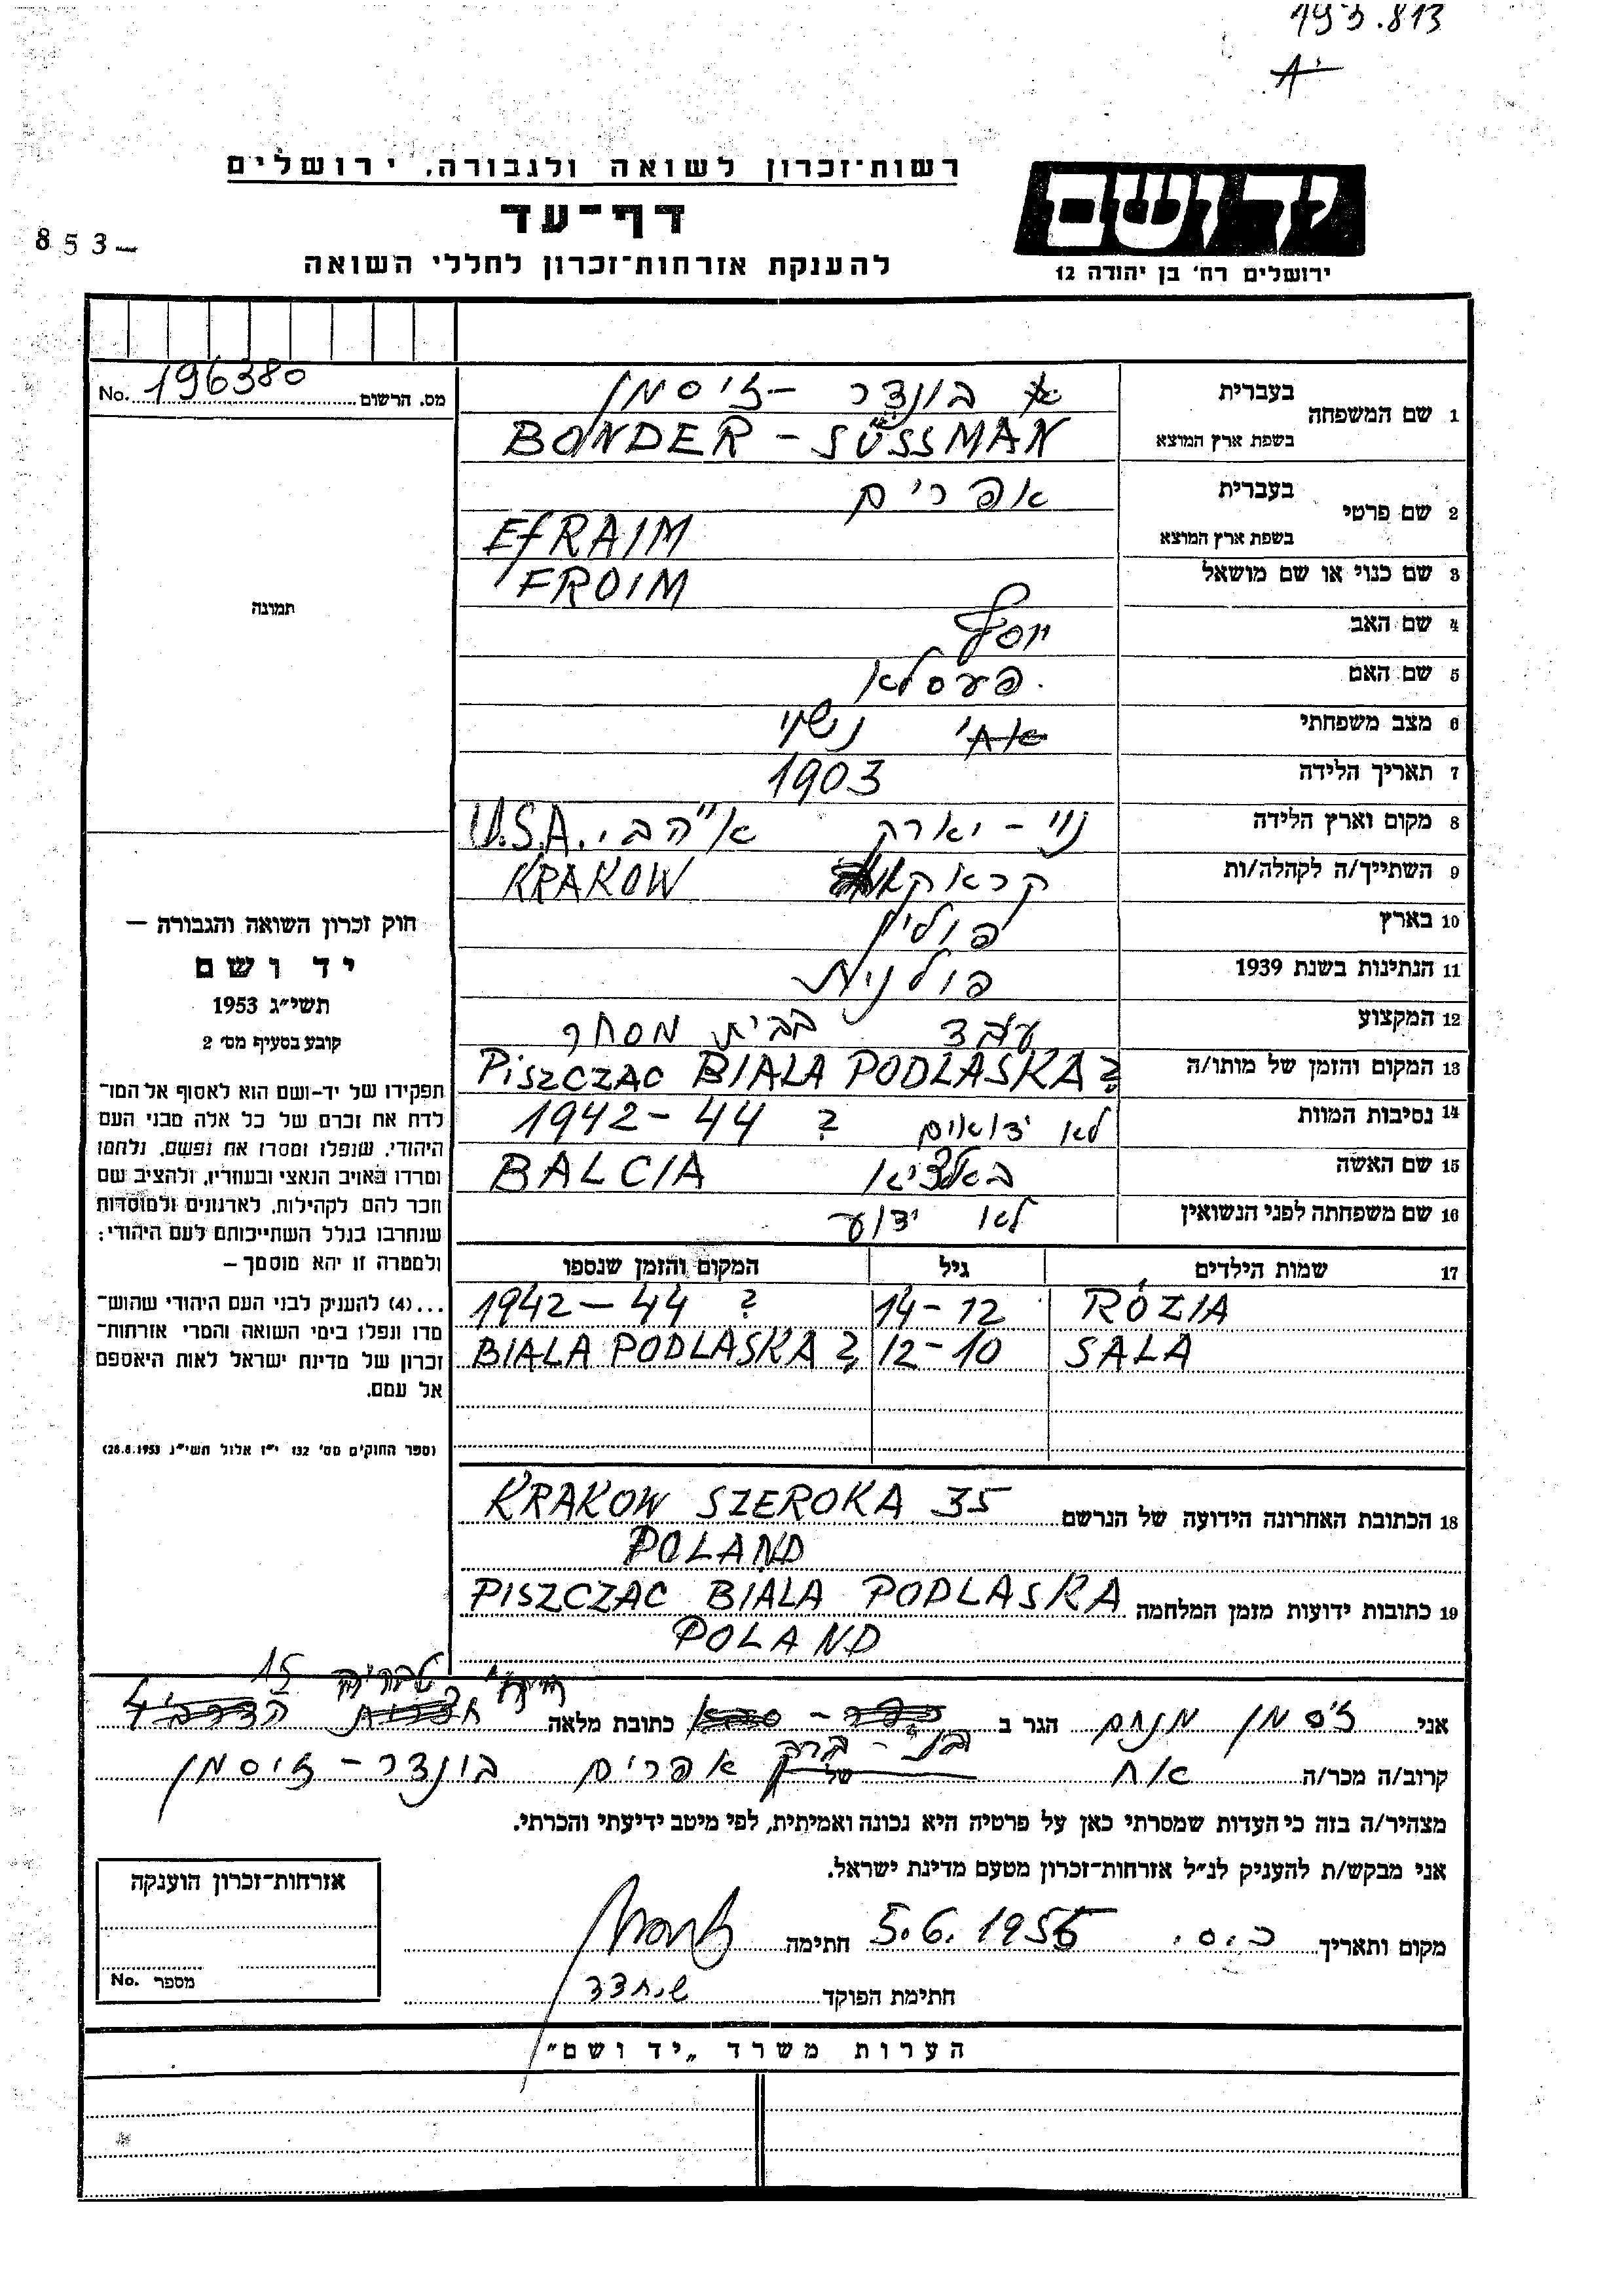 195.813
A
רשות־זכרון לשואה ולגבורה, ירושלים
יד ושם
דף־עד
853-
להענקת אזרחות־זכרון לחללי השואה
ירושלים רח' בן יהודה 12
מס. הרשום 196380 No.
1 שם המשפחה
בעברית בונדר - זיסמן
בשפת ארץ המוצא BONDER - SÜSSMAN
2 שם פרטי
בעברית אפרים
בשפת ארץ המוצא EfRAIM
3 שם כנוי או שם מושאל FROIM
תמונה
4 שם האב יוסף
5 שם האם פעסלא
6 מצב משפחתי נשוי
7 תאריך הלידה 1903
8 מקום וארץ הלידה נוי - יארק א"הב, U.S.A.
9 השתייך/ה לקהלה/ות קראקא KRAKOW
10 בארץ פולין
11 הנתינות בשנת 1939 פולנית
12 המקצוע עבד בבית מסחר
13 המקום והזמן של מותו/ה PiSZCZAC BIALA PODLASKA ?
14 נסיבות המוות לא ידואים ? 1942-44
15 שם האשה באלציא BALCIA
16 שם משפחתה לפני הנשואין לא ידוע
17 שמות הילדים גיל המקום והזמן שנספו
RÓZIA 14-12 1942-44 ?
SALA 12-10 BIALA PODLASKA ?
חוק זכרון השואה והגבורה —
יד ושם
תשי"ג 1953
קובע בסעיף מס' 2
תפקידו של יד-ושם הוא לאסוף אל המו־
לדת את זכרם של כל אלה מבני העם
היהודי, שנפלו ומסרו את נפשם, נלחמו
ומרדו באויב הנאצי ובעוזריו, ולהציב שם
וזכר להם לקהילות, לארגונים ולמוסדות
שנחרבו בגלל השתייכותם לעם היהודי;
ולמטרה זו יהא מוסמך —
...(4) להעניק לבני העם היהודי שהוש־
מדו ונפלו בימי השואה והמרי אזרחות־
זכרון של מדינת ישראל לאות היאספם
אל עמם.
(ספר החוקים מס' 132 י"ז אלול תשי"ג 28.8.1953)
18 הכתובת האחרונה הידועה של הנרשם KRAKOW SZEROKA 35
POLAND
19 כתובות ידועות מזמן המלחמה PISZCZAC BIALA PODLASKA
POLAND
טבריה 15
אני זיסמן מנחם הגר ב כתובת מלאה
בני - ברק
קרוב/ה מכר/ה אח של אפרים בונדר - זיסמן
מצהיר/ה בזה כי העדות שמסרתי כאן על פרטיה היא נכונה ואמיתית, לפי מיטב ידיעתי והכרתי.
אני מבקש/ת להעניק לנ"ל אזרחות־זכרון מטעם מדינת ישראל.
מקום ותאריך כ.ס. 5.6.1956 חתימה
חתימת הפוקד
אזרחות־זכרון הוענקה
מספר No.
הערות משרד „יד ושם"